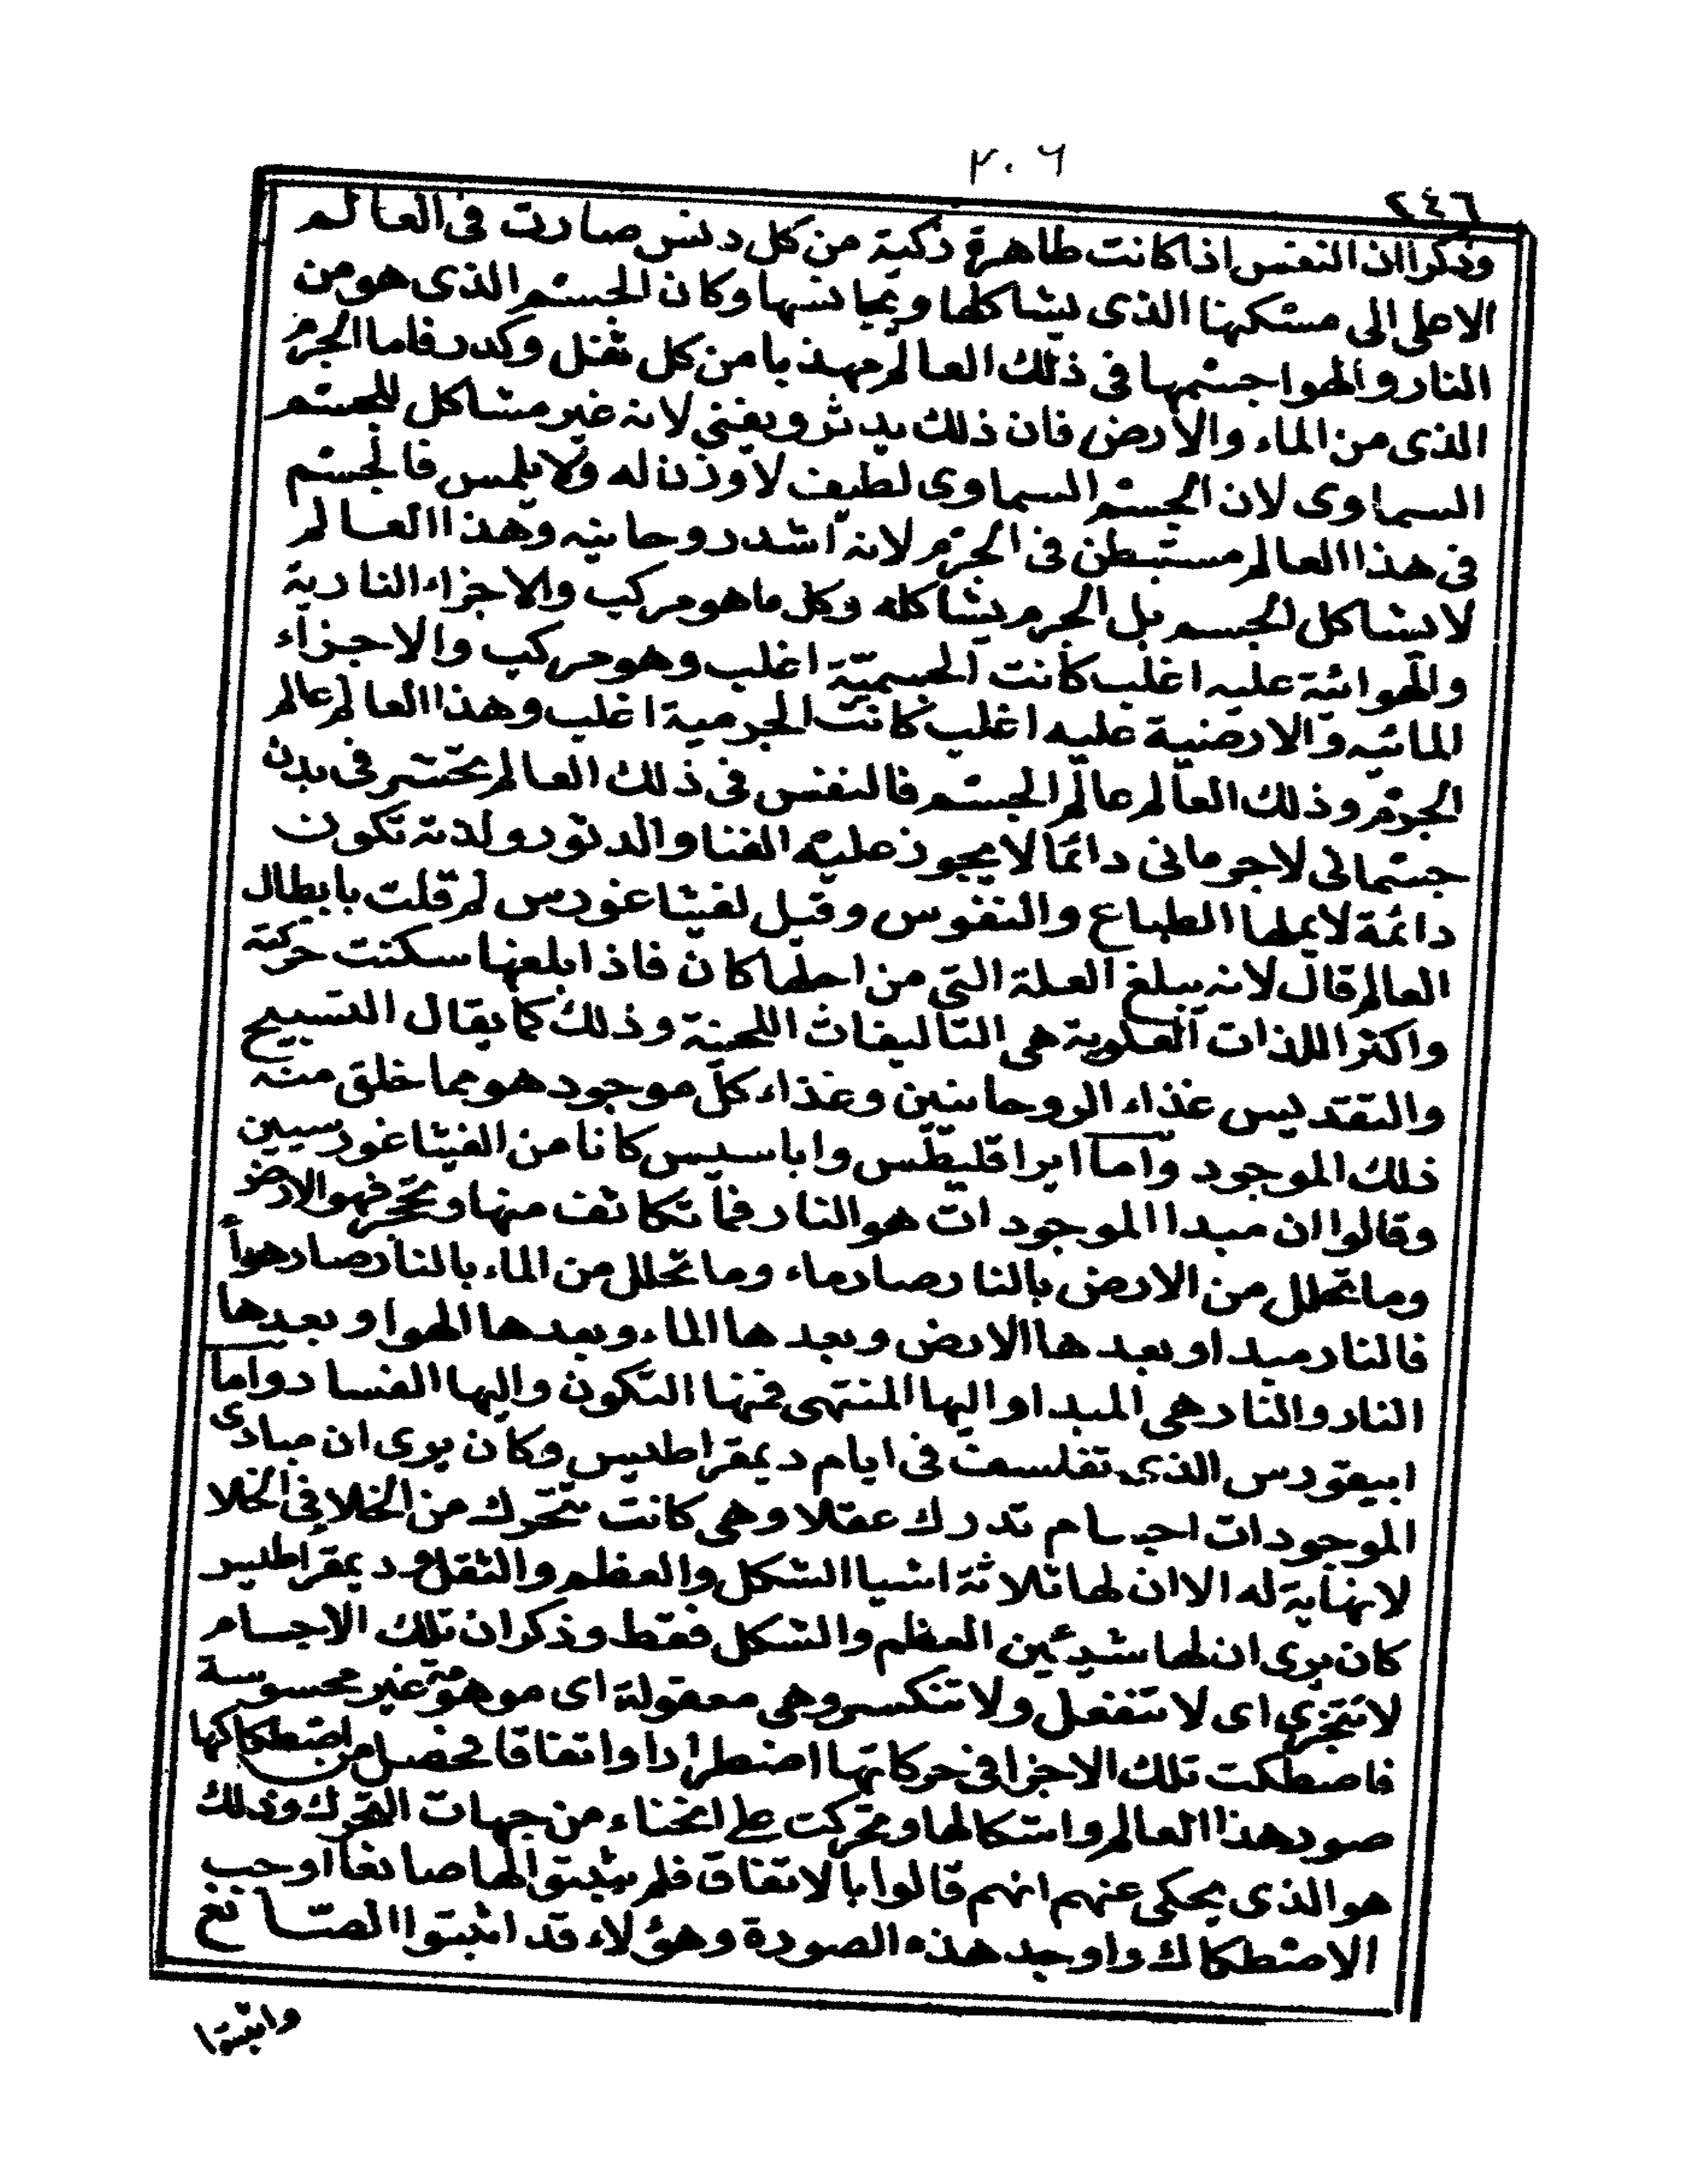 ٢٠٦
٢٤٦
وذكرا ان النفس اذا كانت طاهرة زكية من كل دنس صارت فى العالم
الاعلى الى مسكنها الذى يشاكلها ويجانسها وكان الجسم الذى هو من
النار والهوا جسمها فى ذلك العالم مهذبا من كل ثفل وكدر فاما الجرم
الذى من الماء والارض فان ذلك يدثر ويفنى لانه غير مشاكل للجسم
السماوى لان الجسم السماوى لطيف لا وزن له ولا يلمس فالجسم
فى هذا العالم مستبطن فى الجرم لانه اشد روحانيه وهذا العالم
لا يشاكل الجسم بل الجرم يشاكله وكل ما هو مركب والاجزاء النارية
والهوائية عليه اغلب كانت الجسمية اغلب وهو مركب والاجزاء
المائيه والارضية عليه اغلب كانت الجرمية اغلب وهذا العالم عالم
الجرم وذلك العالم عالم الجسم فالنفس فى ذلك العالم تحشر فى بدن
جسمانى لا جرمانى دائما لا يجوز عليه الفنا والدثور ولذته تكون
دائمة لا يملها الطباع والنفوس وقيل لفيثاغورس لم قلت بابطال
العالم قال لانه يبلغ العلة التى من اجلها كان فاذا بلغها سكنت حركته
واكثر اللذات العلوية هى التاليفات اللحنية وذلك كما يقال التسبيح
والتقديس غذاء الروحانيين وغذاء كل موجود هو مما خلق منه
ذلك الموجود واما ايراقليطس واباسيس كانا من الفيثاغورسيين
وقالوا ان مبدا الموجودات هو النار فما تكاثف منها وتحجر فهو الارض
وما تحلل من الارض بالنار صار ماء وما تحلل من الماء بالنار صار هوأ
فالنار مبدا وبعدها الارض وبعدها الماء وبعدها الهوا وبعدها
النار والنار هى المبدا واليها المنتهى فمنها التكون واليها الفساد واما
ابيقورس الذى تفلسف فى ايام ديمقراطيس وكان يرى ان مبادى
الموجودات اجسام تدرك عقلا وهى كانت تتحرك من الخلا فى الخلا
لا نهاية له الا ان لها ثلاثة اشيا الشكل والعظم والثقل وديمقراطيس
كان يرى ان لها شيئين العظم والشكل فقط وذكر ان تلك الاجسام
لا تتجزى اى لا تنفعل ولا تنكسر وهى معقولة اى موهومة غير محسوسة
فاصطكت تلك الاجزا فى حركاتها اضطرارا واتفاقا فحصل من اصطكاكها
صور هذا العالم واشكالها وتحركت على انحناء من جهات التحرك وذلك
هو الذى يحكى عنهم انهم قالوا بالاتفاق فلم يثبتوا لها صانعا اوجب
الاصطكاك واوجد هذه الصورة وهؤلاء قد اثبتوا الصانع
واثبتوا